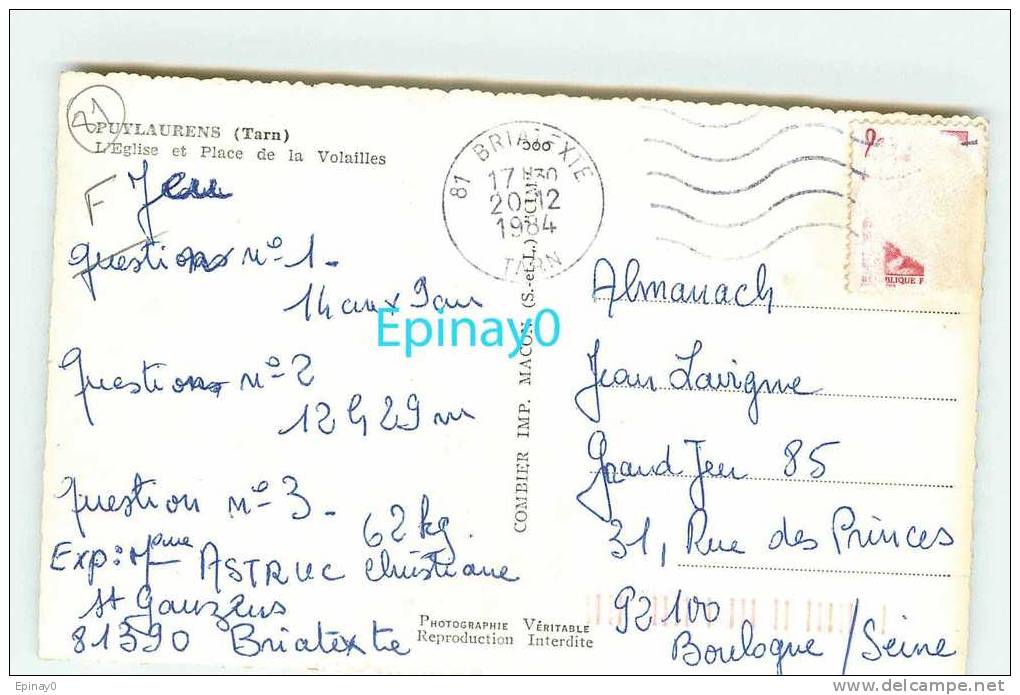 21
PUYLAURENS (Tarn)
L'Eglise et Place de la Volailles
F Jeu
question n° 1 -
14 ans x 9 ans
Question n° 2
12 h 29 m
Question n° 3 -
62 kg.
Exp: Mme ASTRUC Christiane
St Gauzens
81390 Briatexte
81 BRIATEXTE
17 H 30
20-12
1984
TARN
COMBIER IMP. MACON (S.-et-L.) "CIM"
PHOTOGRAPHIE VÉRITABLE
Reproduction Interdite
Almanach
Jean Lavigne
Grand Jeu 85
31, Rue des Princes
92100
Boulogne / Seine
Epinay0
Epinay0
www.delcampe.net